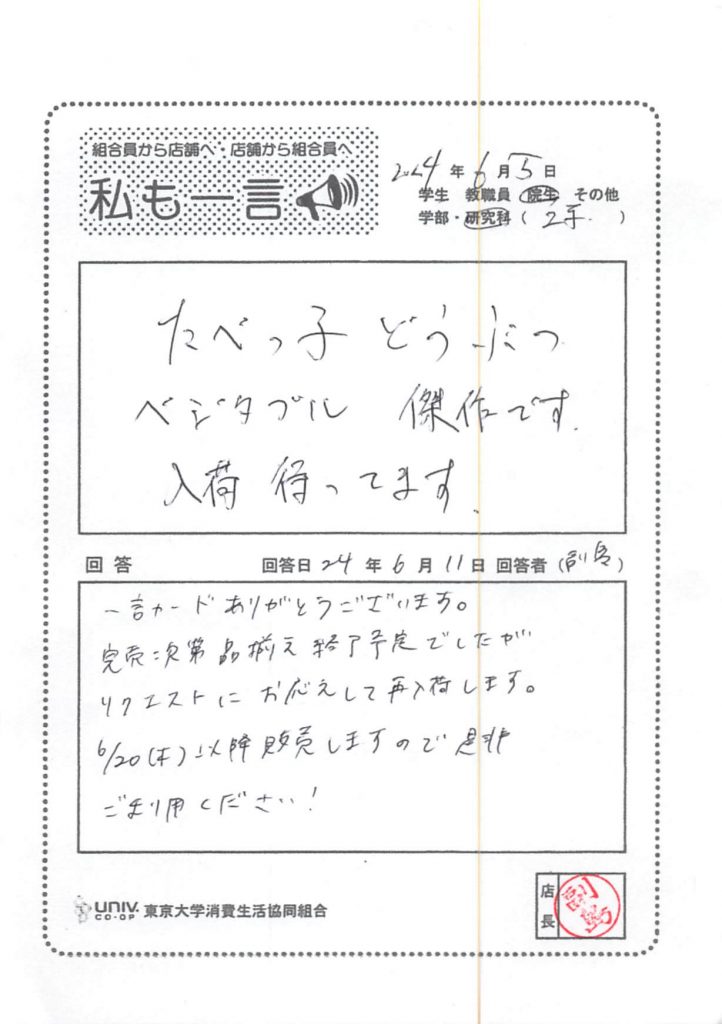 組合員から店舗へ・店舗から組合員へ
私も一言
2024年6月5日
学生 教職員 院生 その他
学部・研究科(工学)
たべっ子 どうぶつ
ベジタブル 傑作です.
入荷 待ってます.
回答 回答日 24年6月11日 回答者(副島)
一言カードありがとうございます。
完売次第品揃え終了予定でしたが
リクエストにお応えして再入荷します。
6/20(木)以降販売しますので是非
ご利用ください!
UNIV. CO-OP 東京大学消費生活協同組合
店長 副島